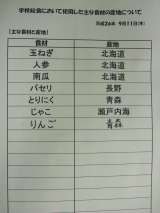 学校給食において使用した主な食材の産地について
平成26年 9月11日(木)
【主な食材と産地】
食材 産地
玉ねぎ 北海道
人参 北海道
南瓜 北海道
パセリ 長野
とりにく 青森
じゃこ 瀬戸内海
りんご 青森